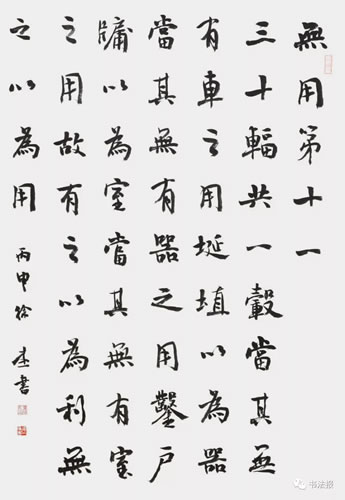 無用第十一
三十輻共一轂當其無
有車之用埏埴以為器
當其無有器之用鑿戶
牖以為室當其無有室
之用故有之以為利無
之以為用
丙申徐 書
书法报